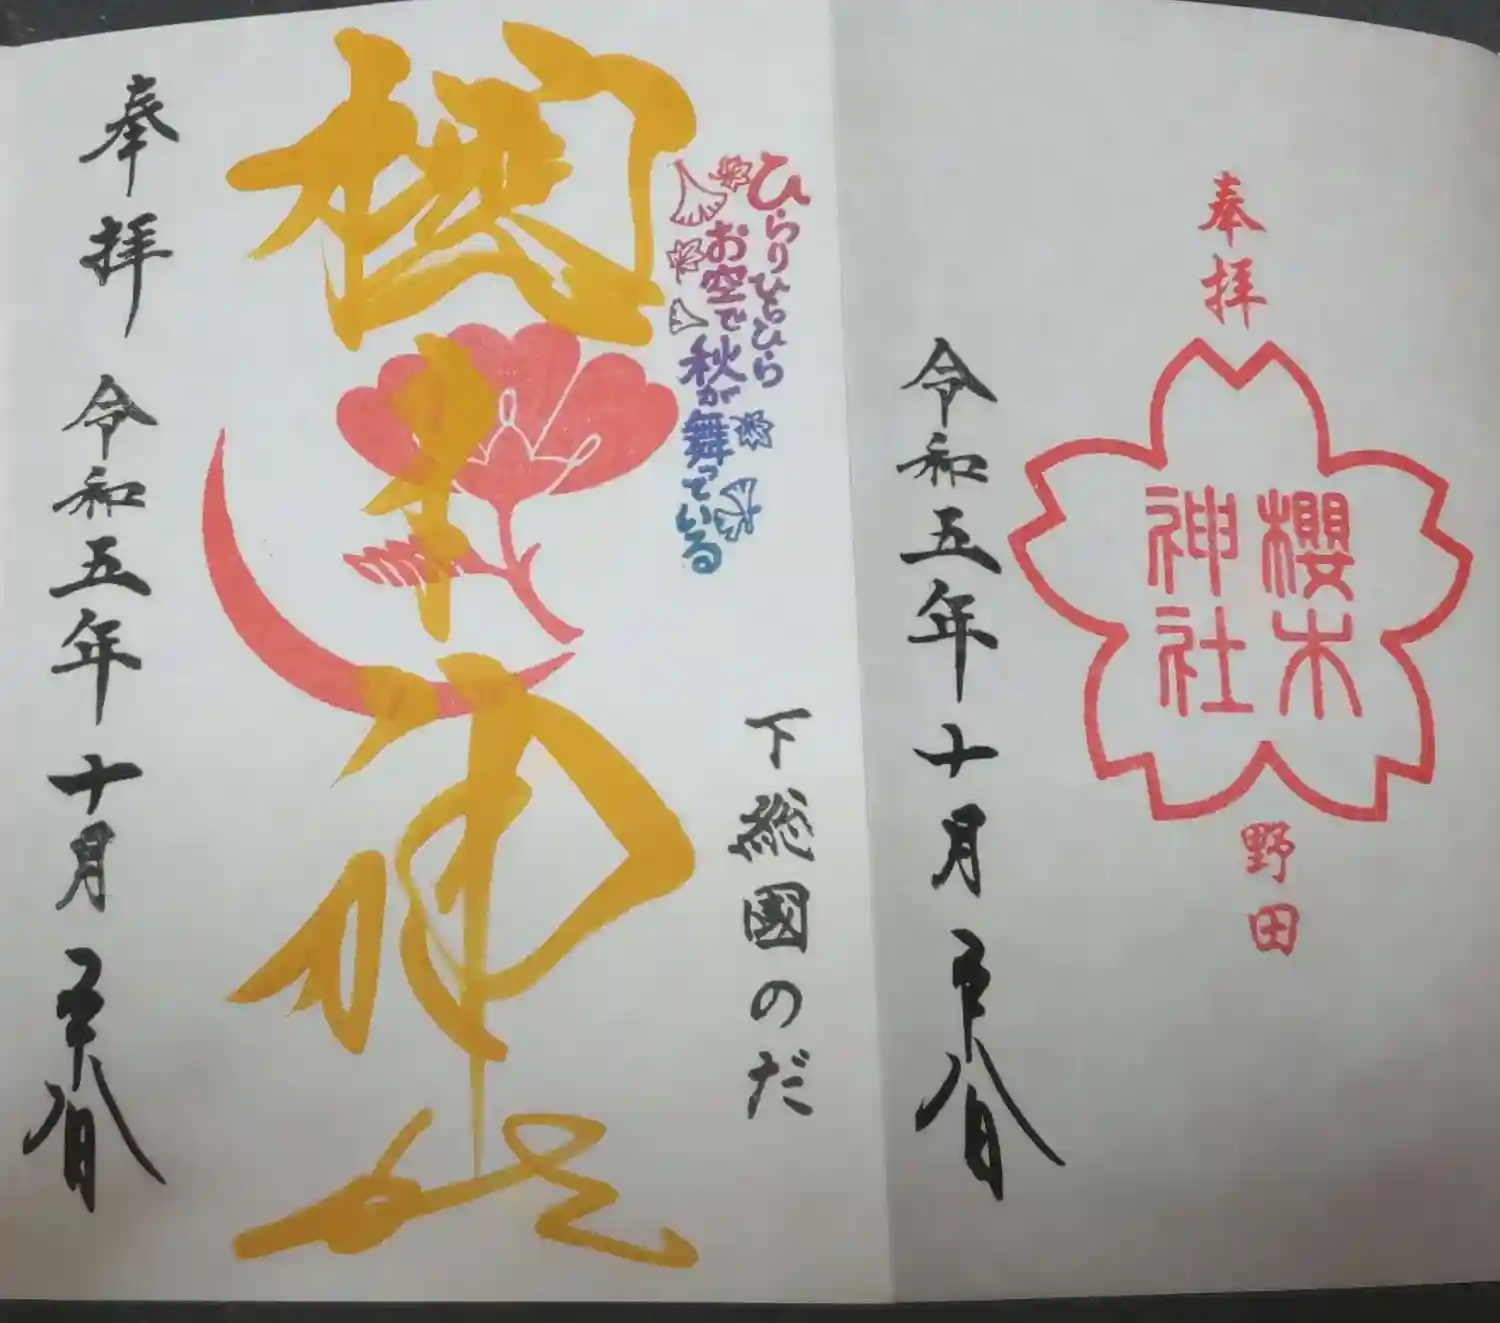 奉拝
櫻木
神社
野田
令和五年十月八日
ひらりひらひら
お空で秋が舞っている
下総國のだ
櫻木神社
奉拝 令和五年十月八日